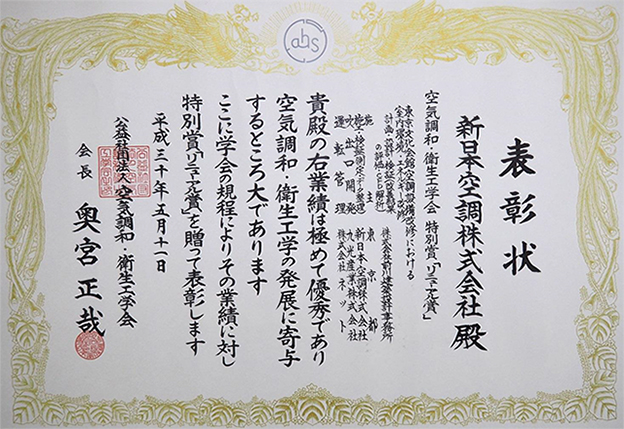 表彰状
新日本空調株式会社 殿
空気調和・衛生工学会 特別賞「リニューアル賞」
東京文化会館空調設備改修における
室内環境・エネルギー改修
計画・設計・検証
の評価
施主 東京都
施工・検証
新日本空調株式会社
吹出口開発 九光産業株式会社
運転管理 株式会社
貴殿の右業績は極めて優秀であり
空気調和・衛生工学の発展に寄与
するところ大であります
ここに学会の規程によりその業績に対し
特別賞「リニューアル賞」を贈って表彰します
平成三十年五月十一日
公益社団法人 空気調和・衛生工学会
会長 奥宮正哉
ahs